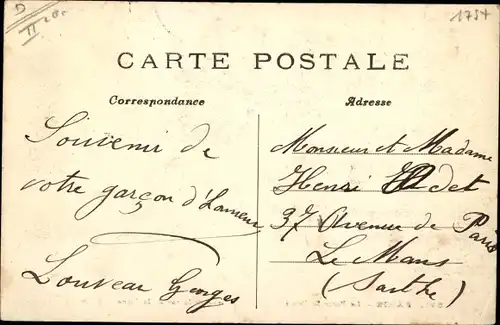 D
II 20c
1754
CARTE POSTALE
Correspondance
Adresse
Souvenir de
votre garçon d'Honneur
Louveau Georges
Monsieur et Madame
Henri
37 Avenue de Paris
Le Mans
(Sarthe)